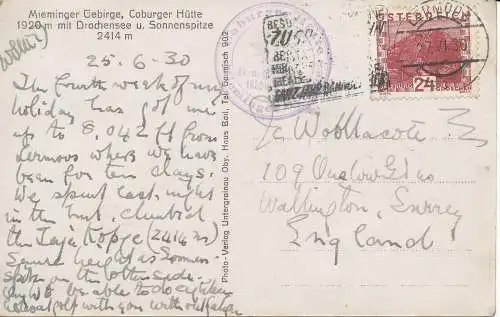 Mieminger Gebirge, Coburger Hütte
1920 m mit Drachensee u. Sonnenspitze
2414 m
25-6-30
The fourth week of my
holiday has got me
up to 8,042 ft from
Lermoos where we have
been for ten days.
We spent last night
in the hut, climbed
the Taja Köpfe (2414 m)
Same height as Sonnen-
spitze on the other side.
be able to do eighteen
golf with you without
Photo-Verlag Untergrainau Oby. Haus Bail, Tel. Garmisch 902
ÖSTERREICH
24
Wollacote
109 Onslow Gdns
Wallington, Surrey
England